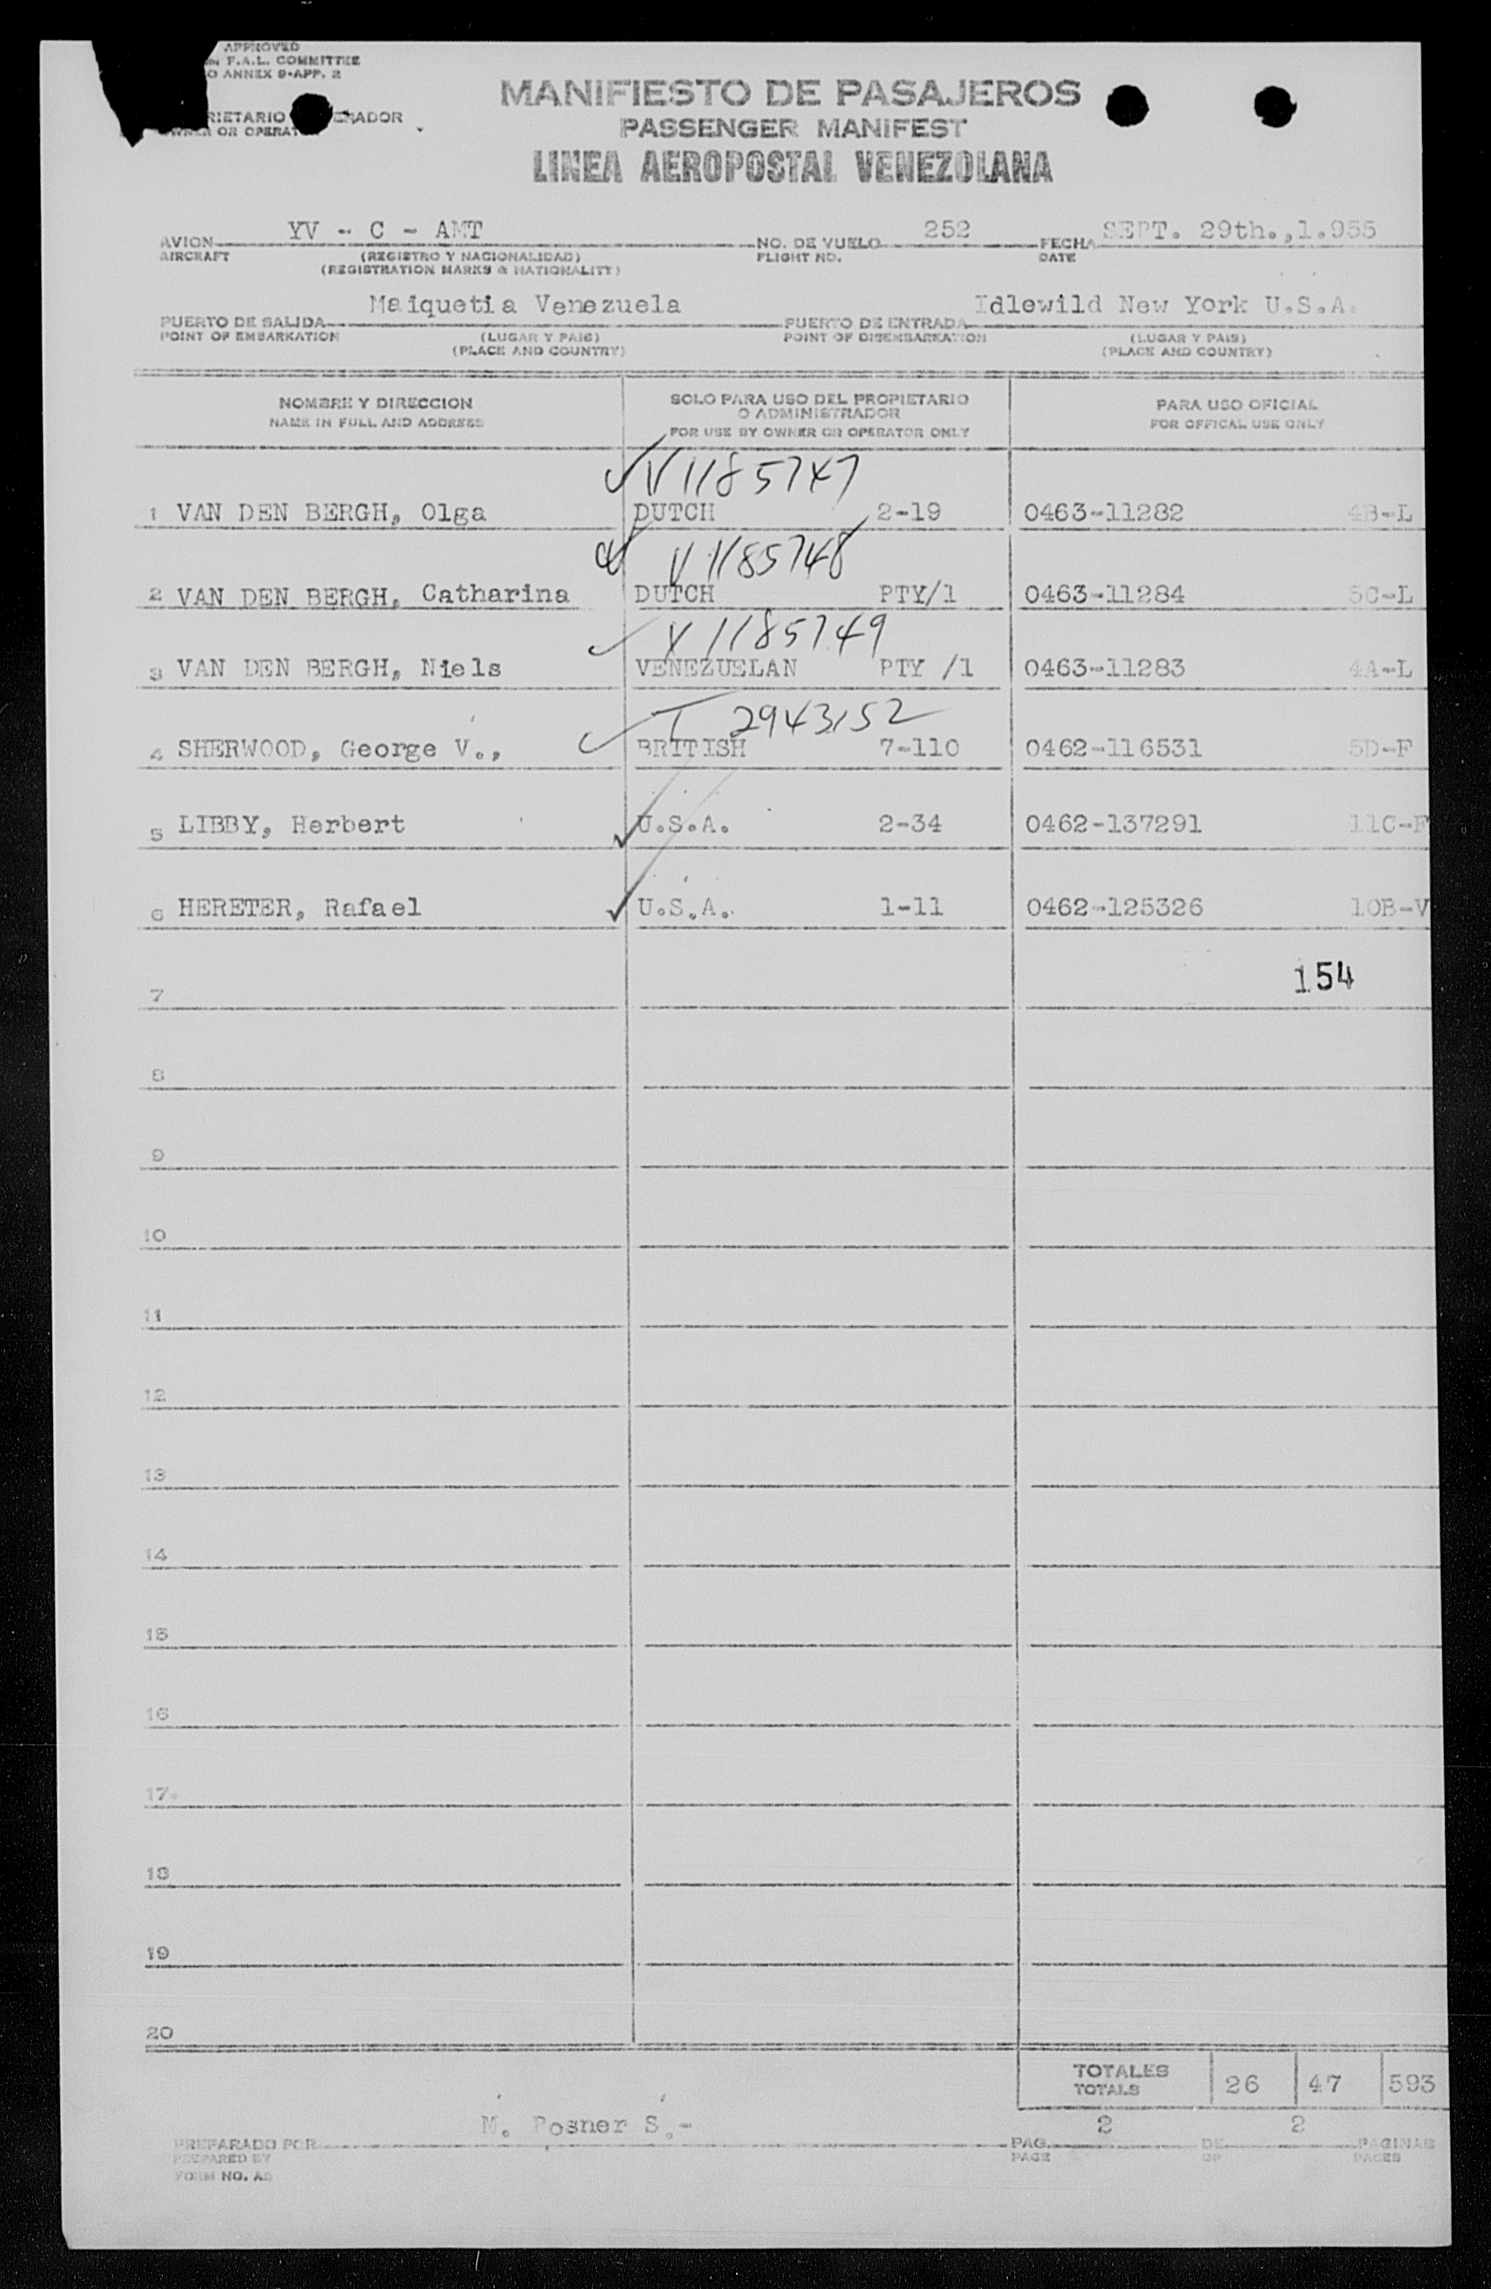 APPROVED
F.A.L. COMMITTEE
ANNEX 9-APP. 2
MANIFIESTO DE PASAJEROS
PASSENGER MANIFEST
LINEA AEROPOSTAL VENEZOLANA
OWNER OR
AVION YV - C - AMT NO. DE VUELO 252 FECHA SEPT. 29th.,1.955
AIRCRAFT (REGISTRO Y NACIONALIDAD) FLIGHT NO. DATE
(REGISTRATION MARKS & NATIONALITY)
PUERTO DE SALIDA Maiquetia Venezuela PUERTO DE ENTRADA Idlewild New York U.S.A.
POINT OF EMBARKATION (LUGAR Y PAIS) POINT OF DISEMBARKATION (LUGAR Y PAIS)
(PLACE AND COUNTRY) (PLACE AND COUNTRY)
NOMBRE Y DIRECCION SOLO PARA USO DEL PROPIETARIO PARA USO OFICIAL
O ADMINISTRADOR
NAME IN FULL AND ADDRESS FOR USE BY OWNER OR OPERATOR ONLY FOR OFFICAL USE ONLY
V 1185747
1 VAN DEN BERGH, Olga DUTCH 2-19 0463-11282 4B-L
V 1185748
2 VAN DEN BERGH, Catharina DUTCH PTY/1 0463-11284 5C-L
V 1185749
3 VAN DEN BERGH, Niels VENEZUELAN PTY /1 0463-11283 4A-L
T 2943152
4 SHERWOOD, George V., BRITISH 7-110 0462-116531 5D-F
5 LIBBY, Herbert U.S.A. 2-34 0462-137291 11C-F
6 HERETER, Rafael U.S.A. 1-11 0462-125326 10B-V
154
7
8
9
10
11
12
13
14
15
16
17
18
19
20
TOTALES 26 47 593
TOTALS
PREPARADO POR M. Posner S.- PAG. 2 DE 2 PAGINAS
PREPARED BY PAGE OF PAGES
FORM NO. A5